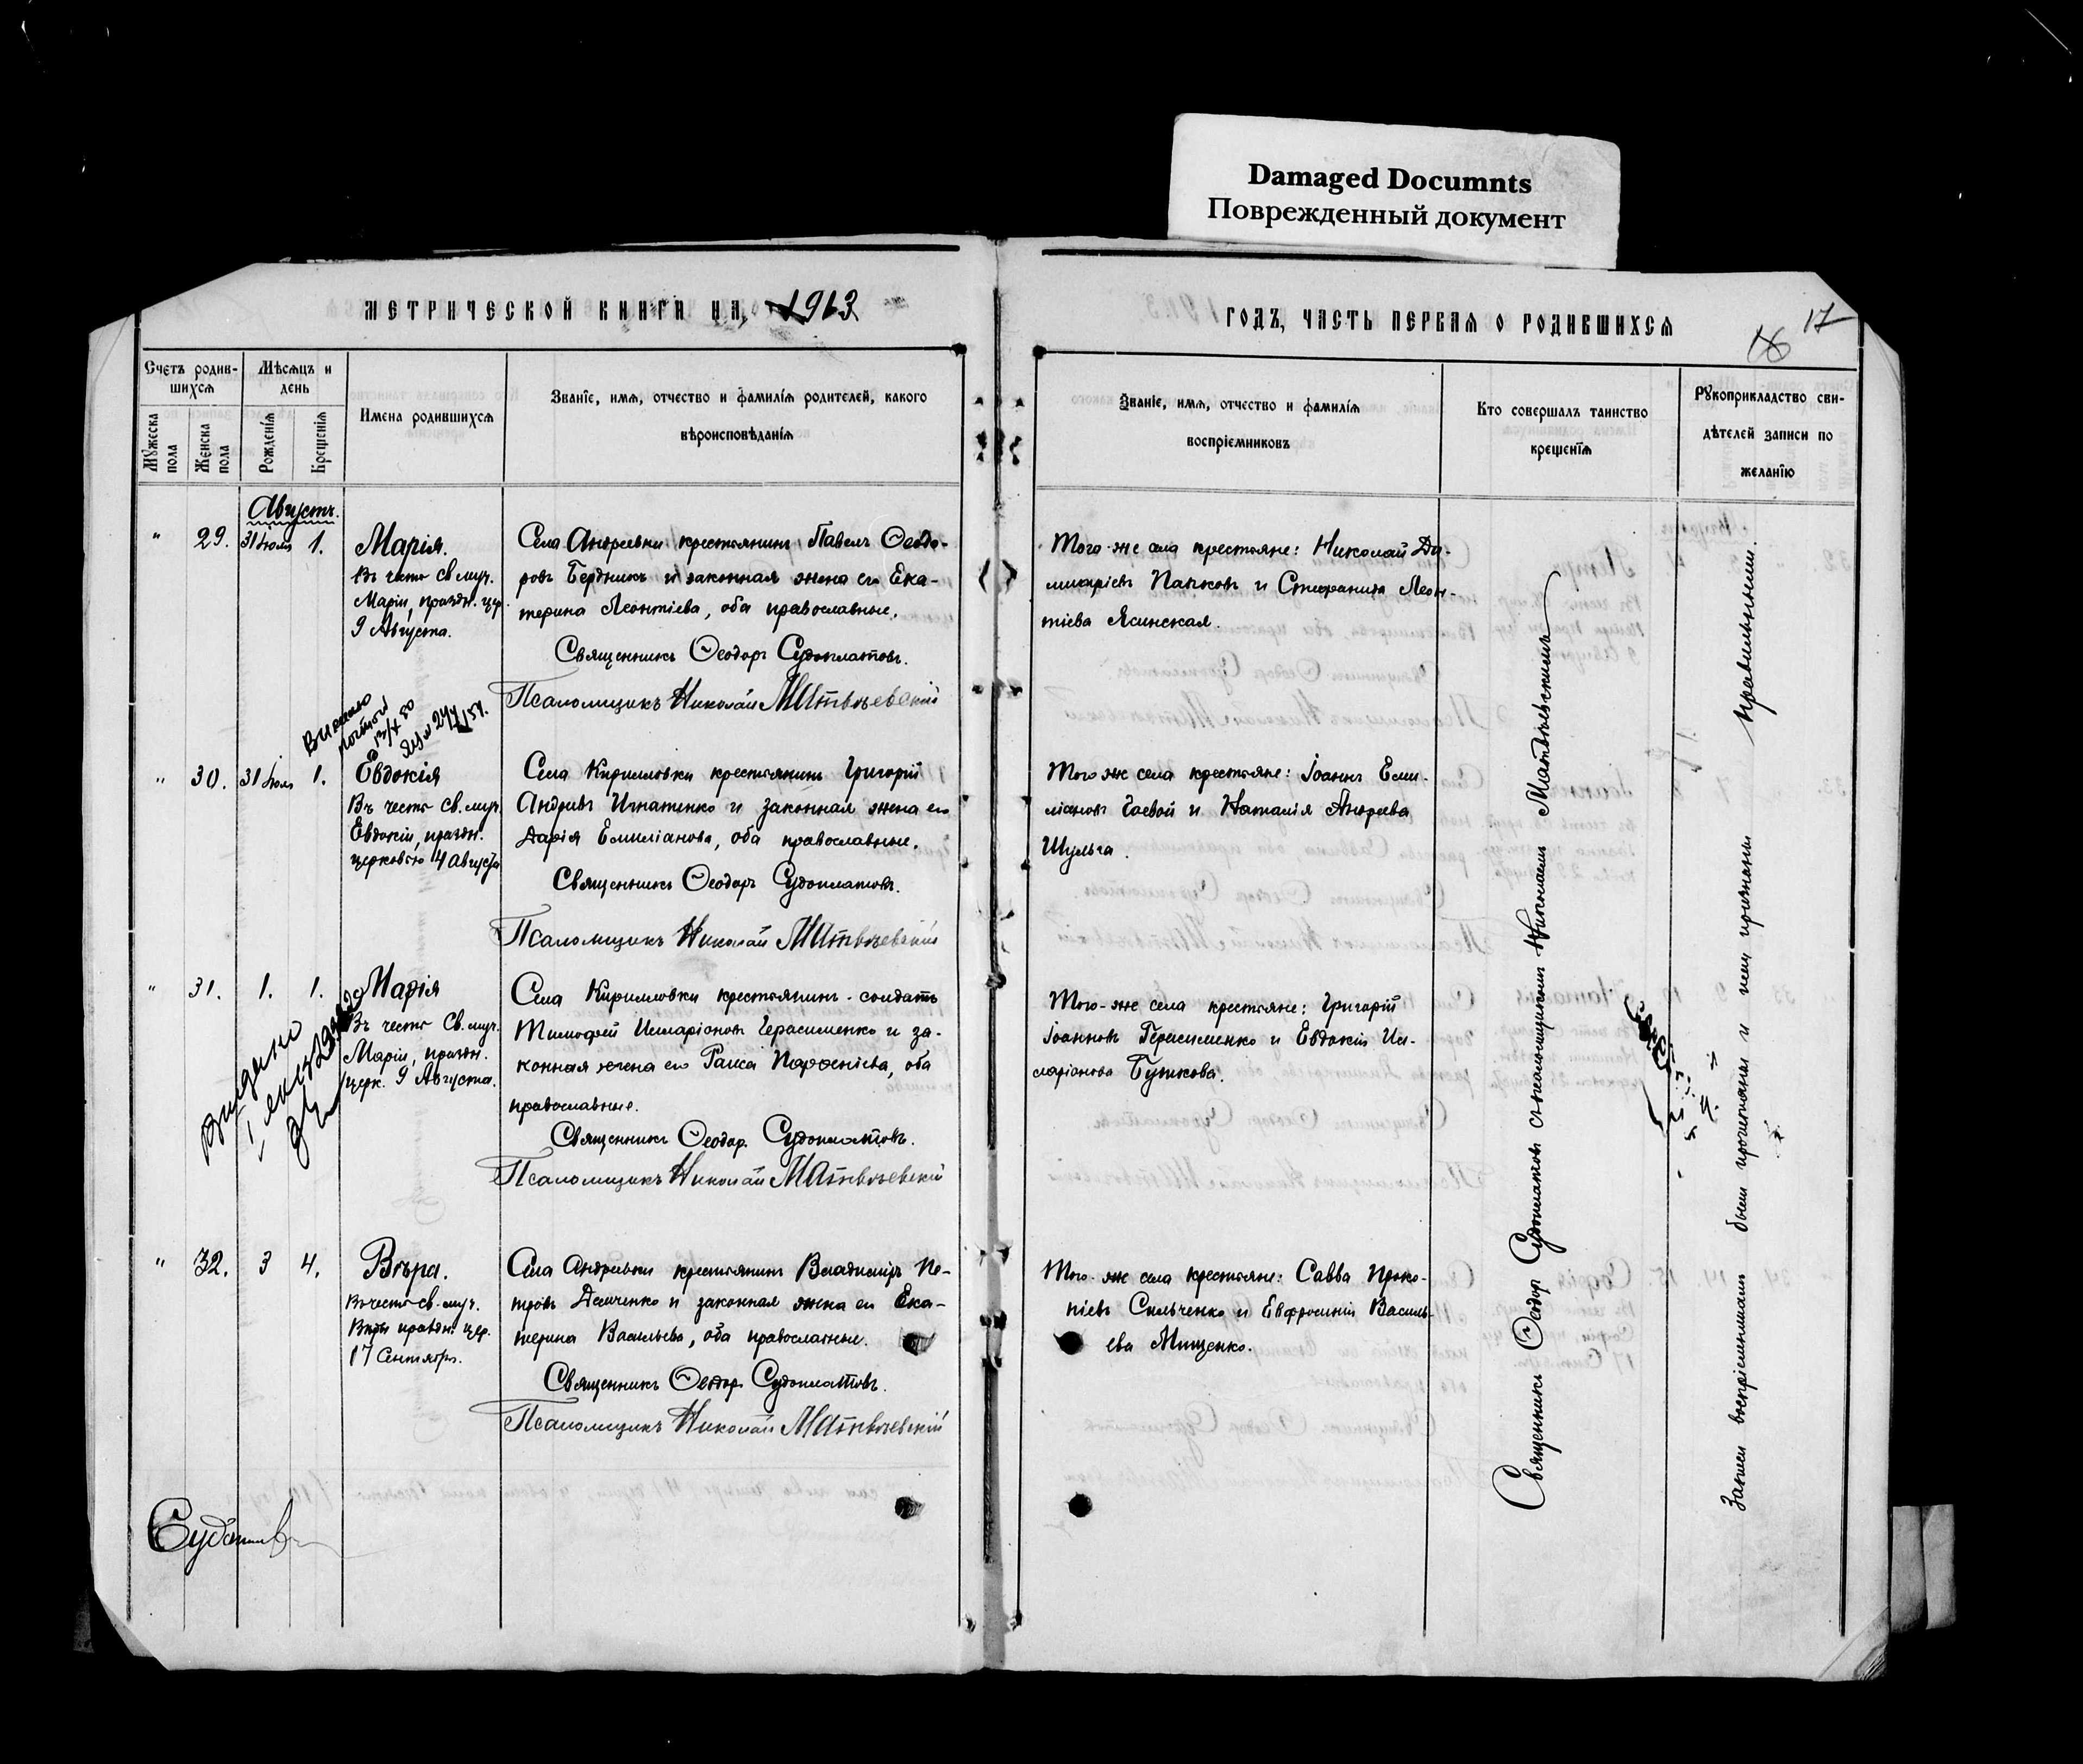 Damaged Documnts
Поврежденный документ
МЕТРИЧЕСКОЙ КНИГИ НА 1913
ГОДЪ, ЧАСТЬ ПЕРВАЯ О РОДИВШИХСЯ
16 17
Счетъ родив-
шихся
Мѣсяцъ и
день
Мужеска
пола
Женска
пола
Рожденія
Крещенія
Имена родившихся
Званіе, имя, отчество и фамилія родителей, какого
вѣроисповѣданія
Званіе, имя, отчество и фамилія
воспріемниковъ
Кто совершалъ таинство
крещенія
Рукоприкладство сви-
дѣтелей записи по
желанію
Августъ.
" 29. 31 Іюля 1.
Марія.
Въ честь св. муч.
Маріи, праздн. цер.
9 Августа.
Села Андреевки крестьянинъ Павелъ Ѳеодо-
ровъ Бердникъ и законная жена его Ека-
терина Леонтіева, оба православные.
Священникъ Ѳеодоръ Судоплатовъ.
Псаломщикъ Николай Матвѣевскій
Того-же села крестьяне: Николай Ди-
митріевъ Папковъ и Стефанида Леон-
тіева Ясинская.
" 30. 31 Іюля 1.
Евдокія
Въ честь св. муч.
Евдокіи, праздн.
церковью 4 Августа
Села Кирилловки крестьянинъ Григорій
Андреевъ Игнатенко и законная жена его
Дарія Емиліанова, оба православные.
Священникъ Ѳеодоръ Судоплатовъ.
Псаломщикъ Николай Матвѣевскій
Того же села крестьяне: Іоаннъ Еми-
ліановъ Гоевой и Наталія Андреева
Шульга.
" 31. 1. 1.
Марія
Въ честь св. муч.
Маріи, праздн.
церк. 9 Августа.
Выдано
Села Кирилловки крестьянинъ-солдатъ
Тимофей Илларіоновъ Герасименко и за-
конная жена его Раиса Парфеніева, оба
православные.
Священникъ Ѳеодоръ Судоплатовъ.
Псаломщикъ Николай Матвѣевскій
Того-же села крестьяне: Григорій
Іоанновъ Герасименко и Евдокія Ил-
ларіонова Буткова.
" 32. 3 4.
Вѣра.
Въ честь св. муч.
Вѣры праздн. цер.
17 Сентября.
Села Андреевки крестьянинъ Владимиръ Пе-
тровъ Демченко и законная жена его Ека-
терина Васильева, оба православные.
Священникъ Ѳеодоръ Судоплатовъ.
Псаломщикъ Николай Матвѣевскій
Того-же села крестьяне: Савва Проко-
піевъ Сильченко и Евфросинія Василь-
ева Мищенко.
Священникъ Ѳеодоръ Судоплатовъ съ псаломщикомъ Николаемъ Матвѣевскимъ
Записи воспріемникамъ были прочитаны и ими признаны правильными.